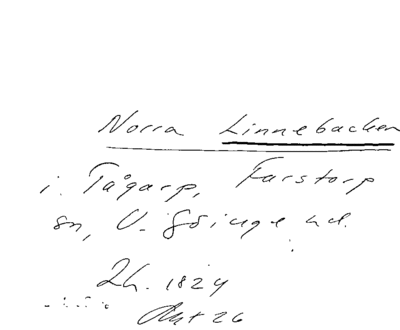 Norra Linnebacken
i Tågarp, Farstorp
sn, V. Göinge hd.
Lh. 1824
Akt 26